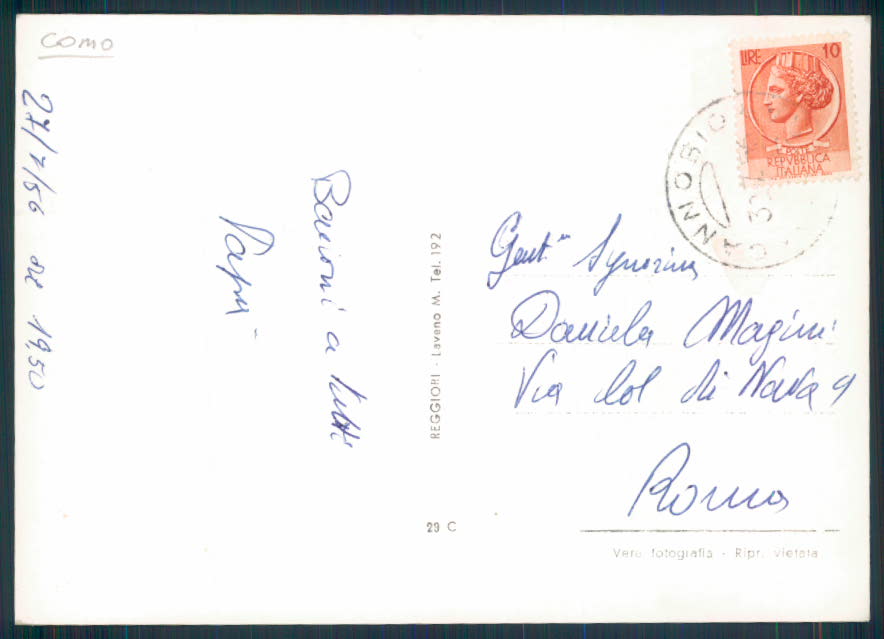 COMO
27/7/56 ore 19,50
Bacioni a tutti
Papà
REGGIORI - Laveno M. Tel. 192
29 C
LIRE 10
POSTE
REPVBBLICA
ITALIANA
CANNOBIO
Gent.ma Signorina
Daniela Magini
Via Col di Nava 9
Roma
Vera fotografia - Ripr. vietata